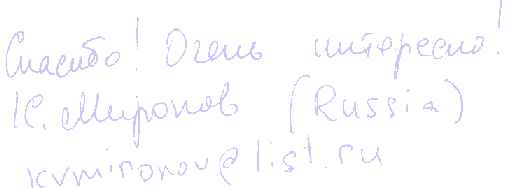 Спасибо! Очень интересно!
К. Миронов (Russia)
kvmironov@list.ru